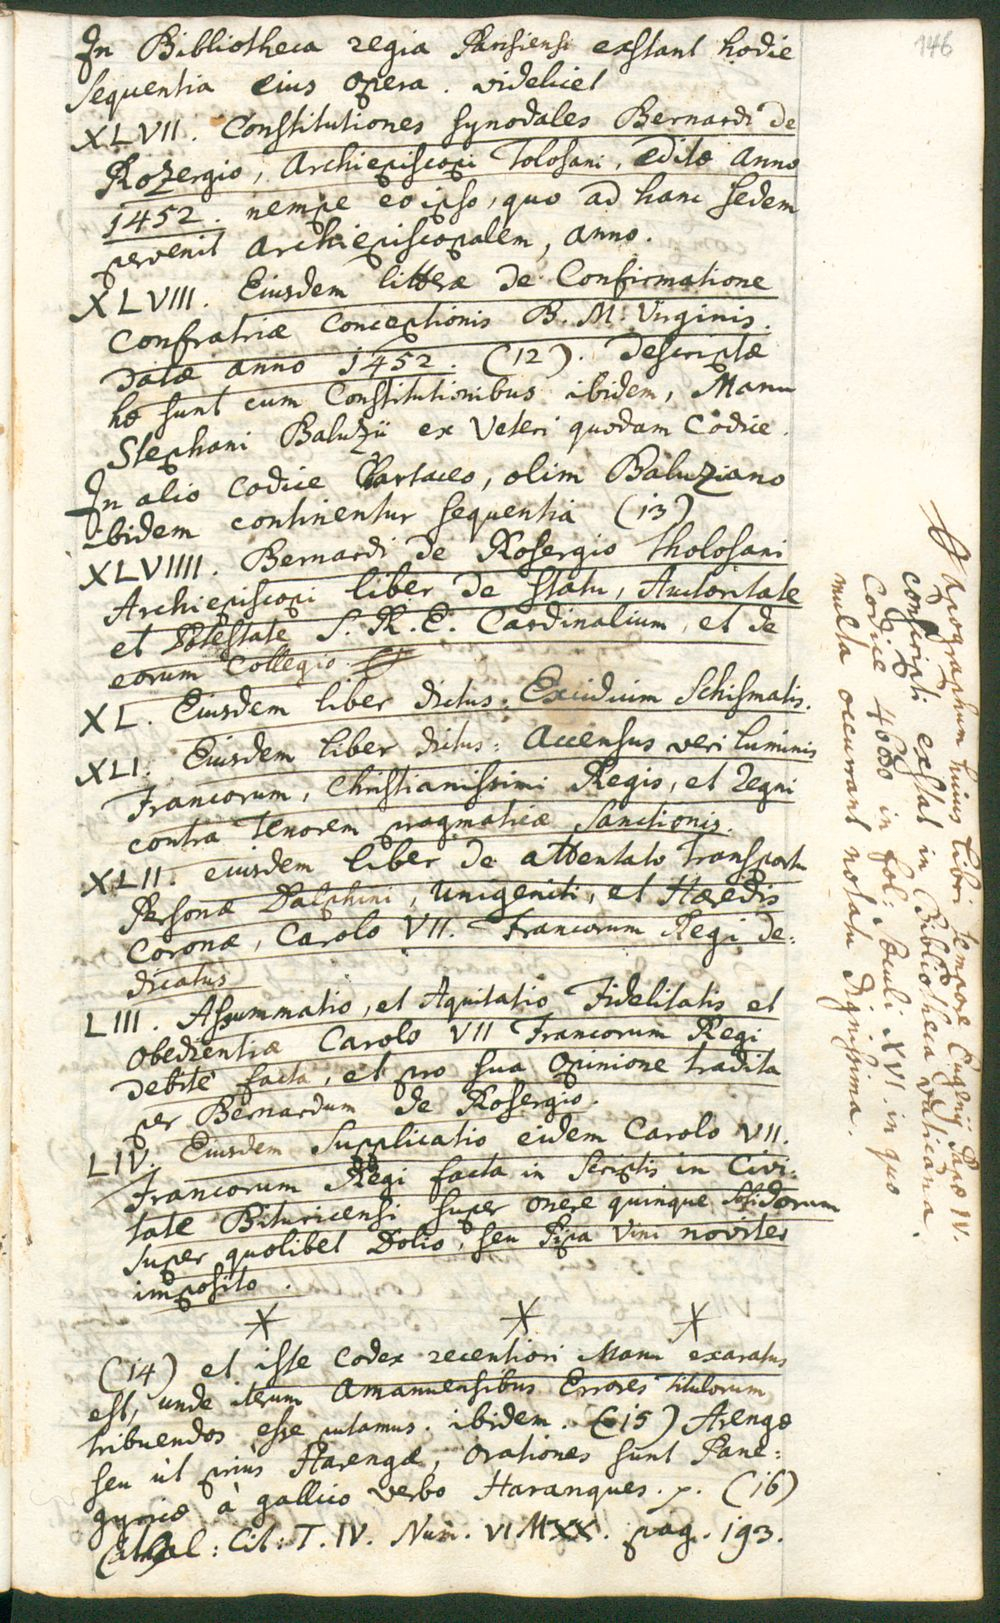 146
In Bibliotheca regia Parisiensi exstant hodie
sequentia eius opera. videlicet
XLVII. Constitutiones synodales Bernardi de
Rozergio, Archiepiscopi Tolosani, editæ anno
1452. nempe eo ipso, quo ad hanc sedem
pervenit archiepiscopalem, anno.
XLVIII. Eiusdem litteræ de Confirmatione
Confratriæ Conceptionis B. M. Virginis.
datæ anno 1452. (12). Descriptæ
hæ sunt cum Constitutionibus ibidem, Manu
Stephani Baluzii ex Veteri quodam Codice.
In alio Codice Chartaceo, olim Baluziano
ibidem continentur sequentia (13)
XLVIIII. Bernardi de Rosergio tholosani
Archiepiscopi liber de Statu, Autoritate
et Potestate S. R. E. Cardinalium, et de
eorum Collegio
XL. Eiusdem liber dictus: Excidium Schismatis.
XLI. Eiusdem liber dictus: Accensus veri luminis
Francorum, Christianissimi Regis, et regni
contra tenorem pragmaticæ Sanctionis.
XLII. eiusdem liber de attentato transportu
Personæ Dalphini, Unigeniti, et Hæredis
Coronæ, Carolo VII. Francorum Regi de:
dicatus
LIII. Assummatio, et Aquitatio Fidelitatis et
obedientiæ Carolo VII Francorum Regi
debitè facta, et pro sua opinione tradita
per Bernardum de Rosergio.
LIV. Eiusdem Supplicatio eidem Carolo VII.
Francorum Regi facta in Scriptis in Civi:
tate Bituricensi super onere quinque Solidorum
super quolibet Dolio, seu Pipa Vini noviter
imposito.
(14) et iste Codex recentiori Manu exaratus
est, unde iterum amanuensibus Errores titulorum
tribuendos esse putamus. ibidem. (15) Arengæ
seu ut prius Harengæ, orationes sunt Pane:
gyricæ à gallico verbo Haranques. (16)
Cit: T. IV. Num. VIMXX. pag. 193.
Apographum huius libri tempore Eugenii Papæ IV.
conscripti exstat in Bibliotheca vaticana.
Codice in fol: Sæculi XVI. in quo
multa occurrant notatu dignissima.